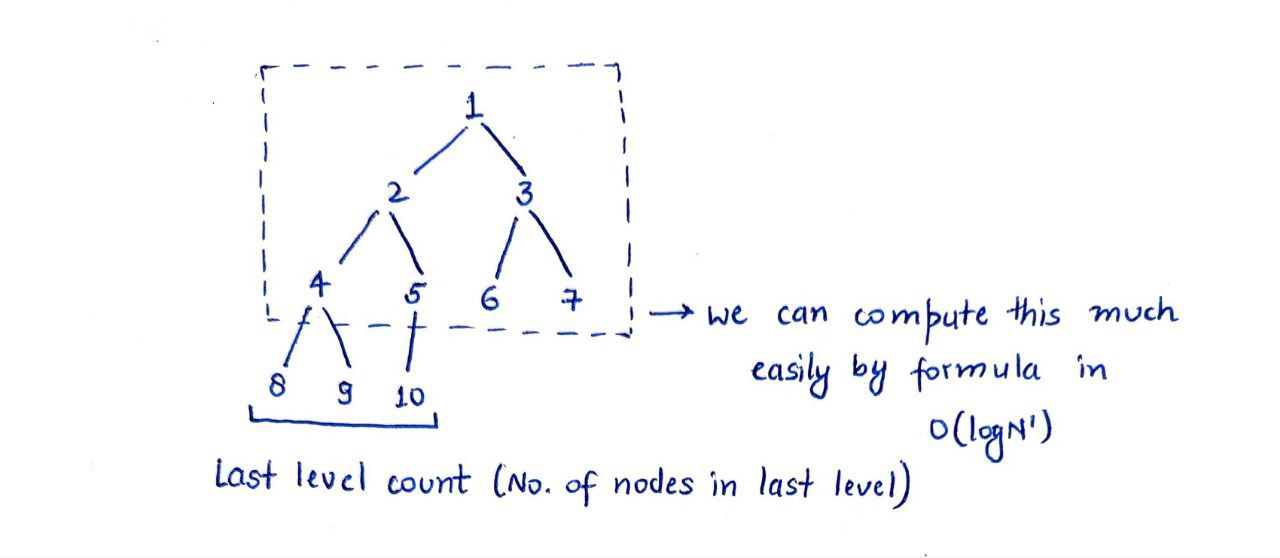 1
2 3
4 5 6 7
→ we can compute this much
easily by formula in
O(logN')
8 9 10
Last level count (No. of nodes in last level)